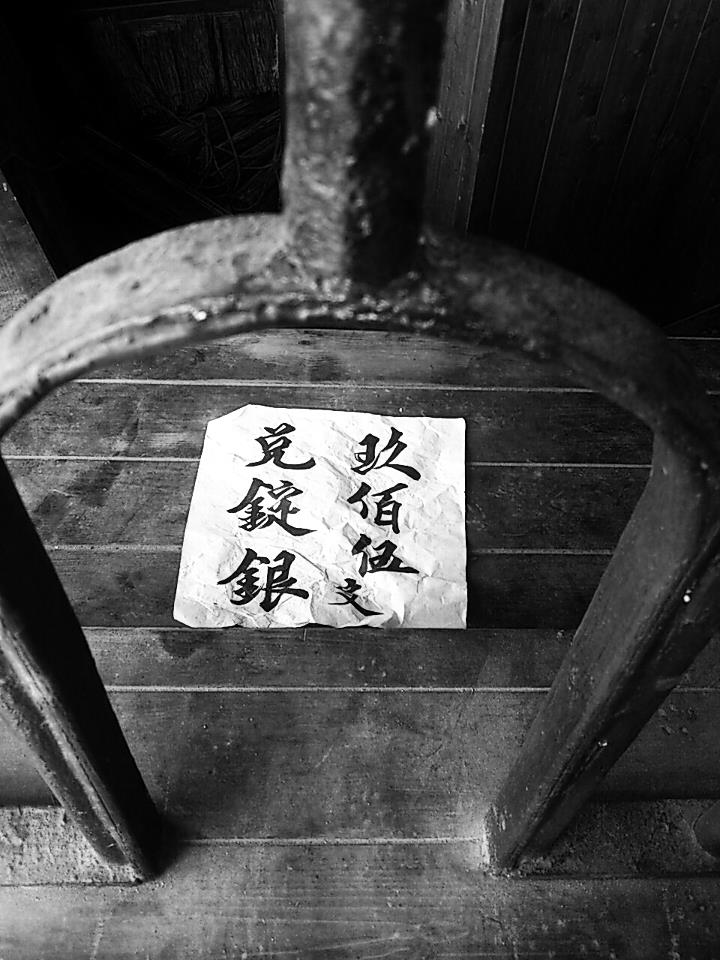 玖佰伍文
兑錠銀